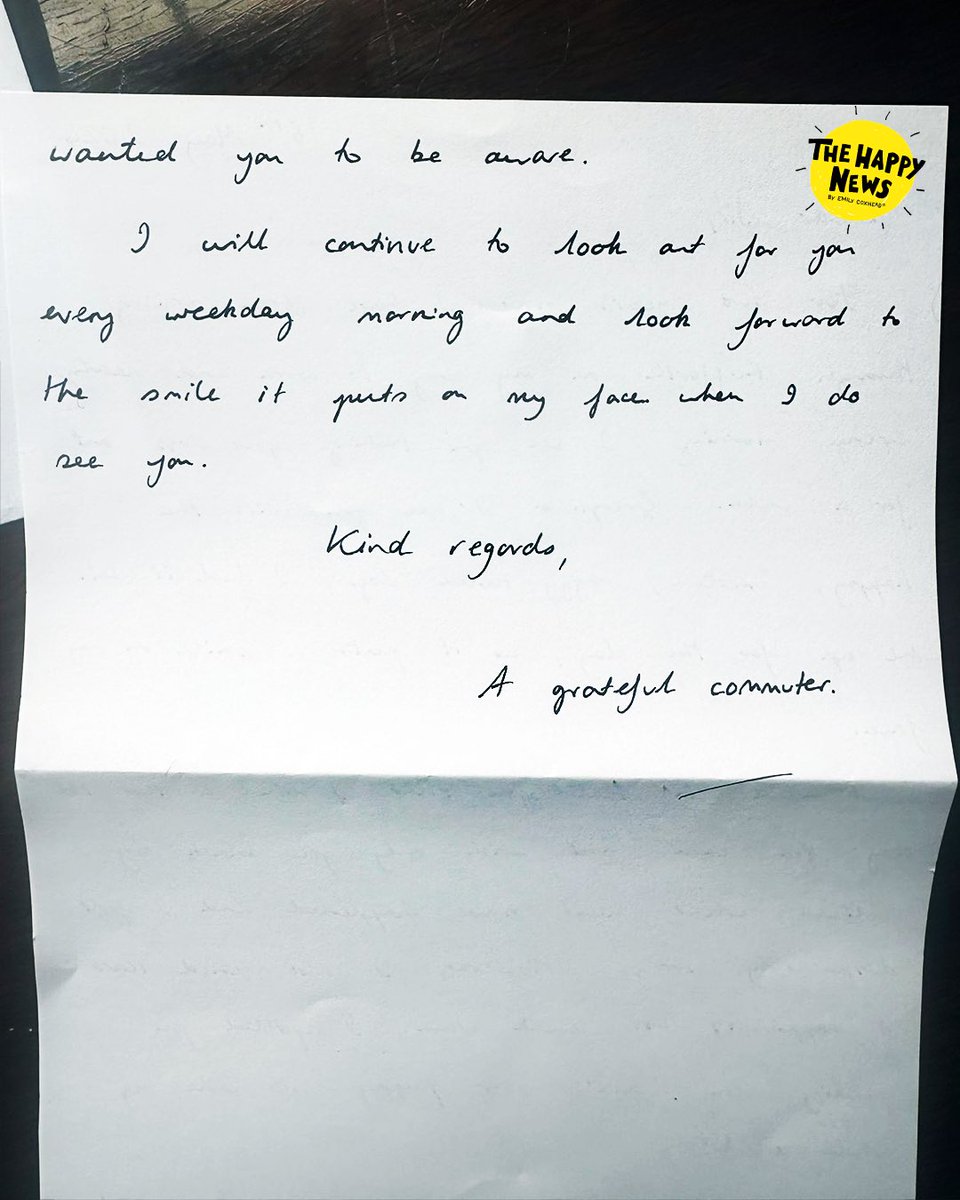 wanted you to be aware.
THE HAPPY
NEWS
BY EMILY COXHEAD®
I will continue to look out for you
every weekday morning and look forward to
the smile it puts on my face when I do
see you.
Kind regards,
A grateful commuter.